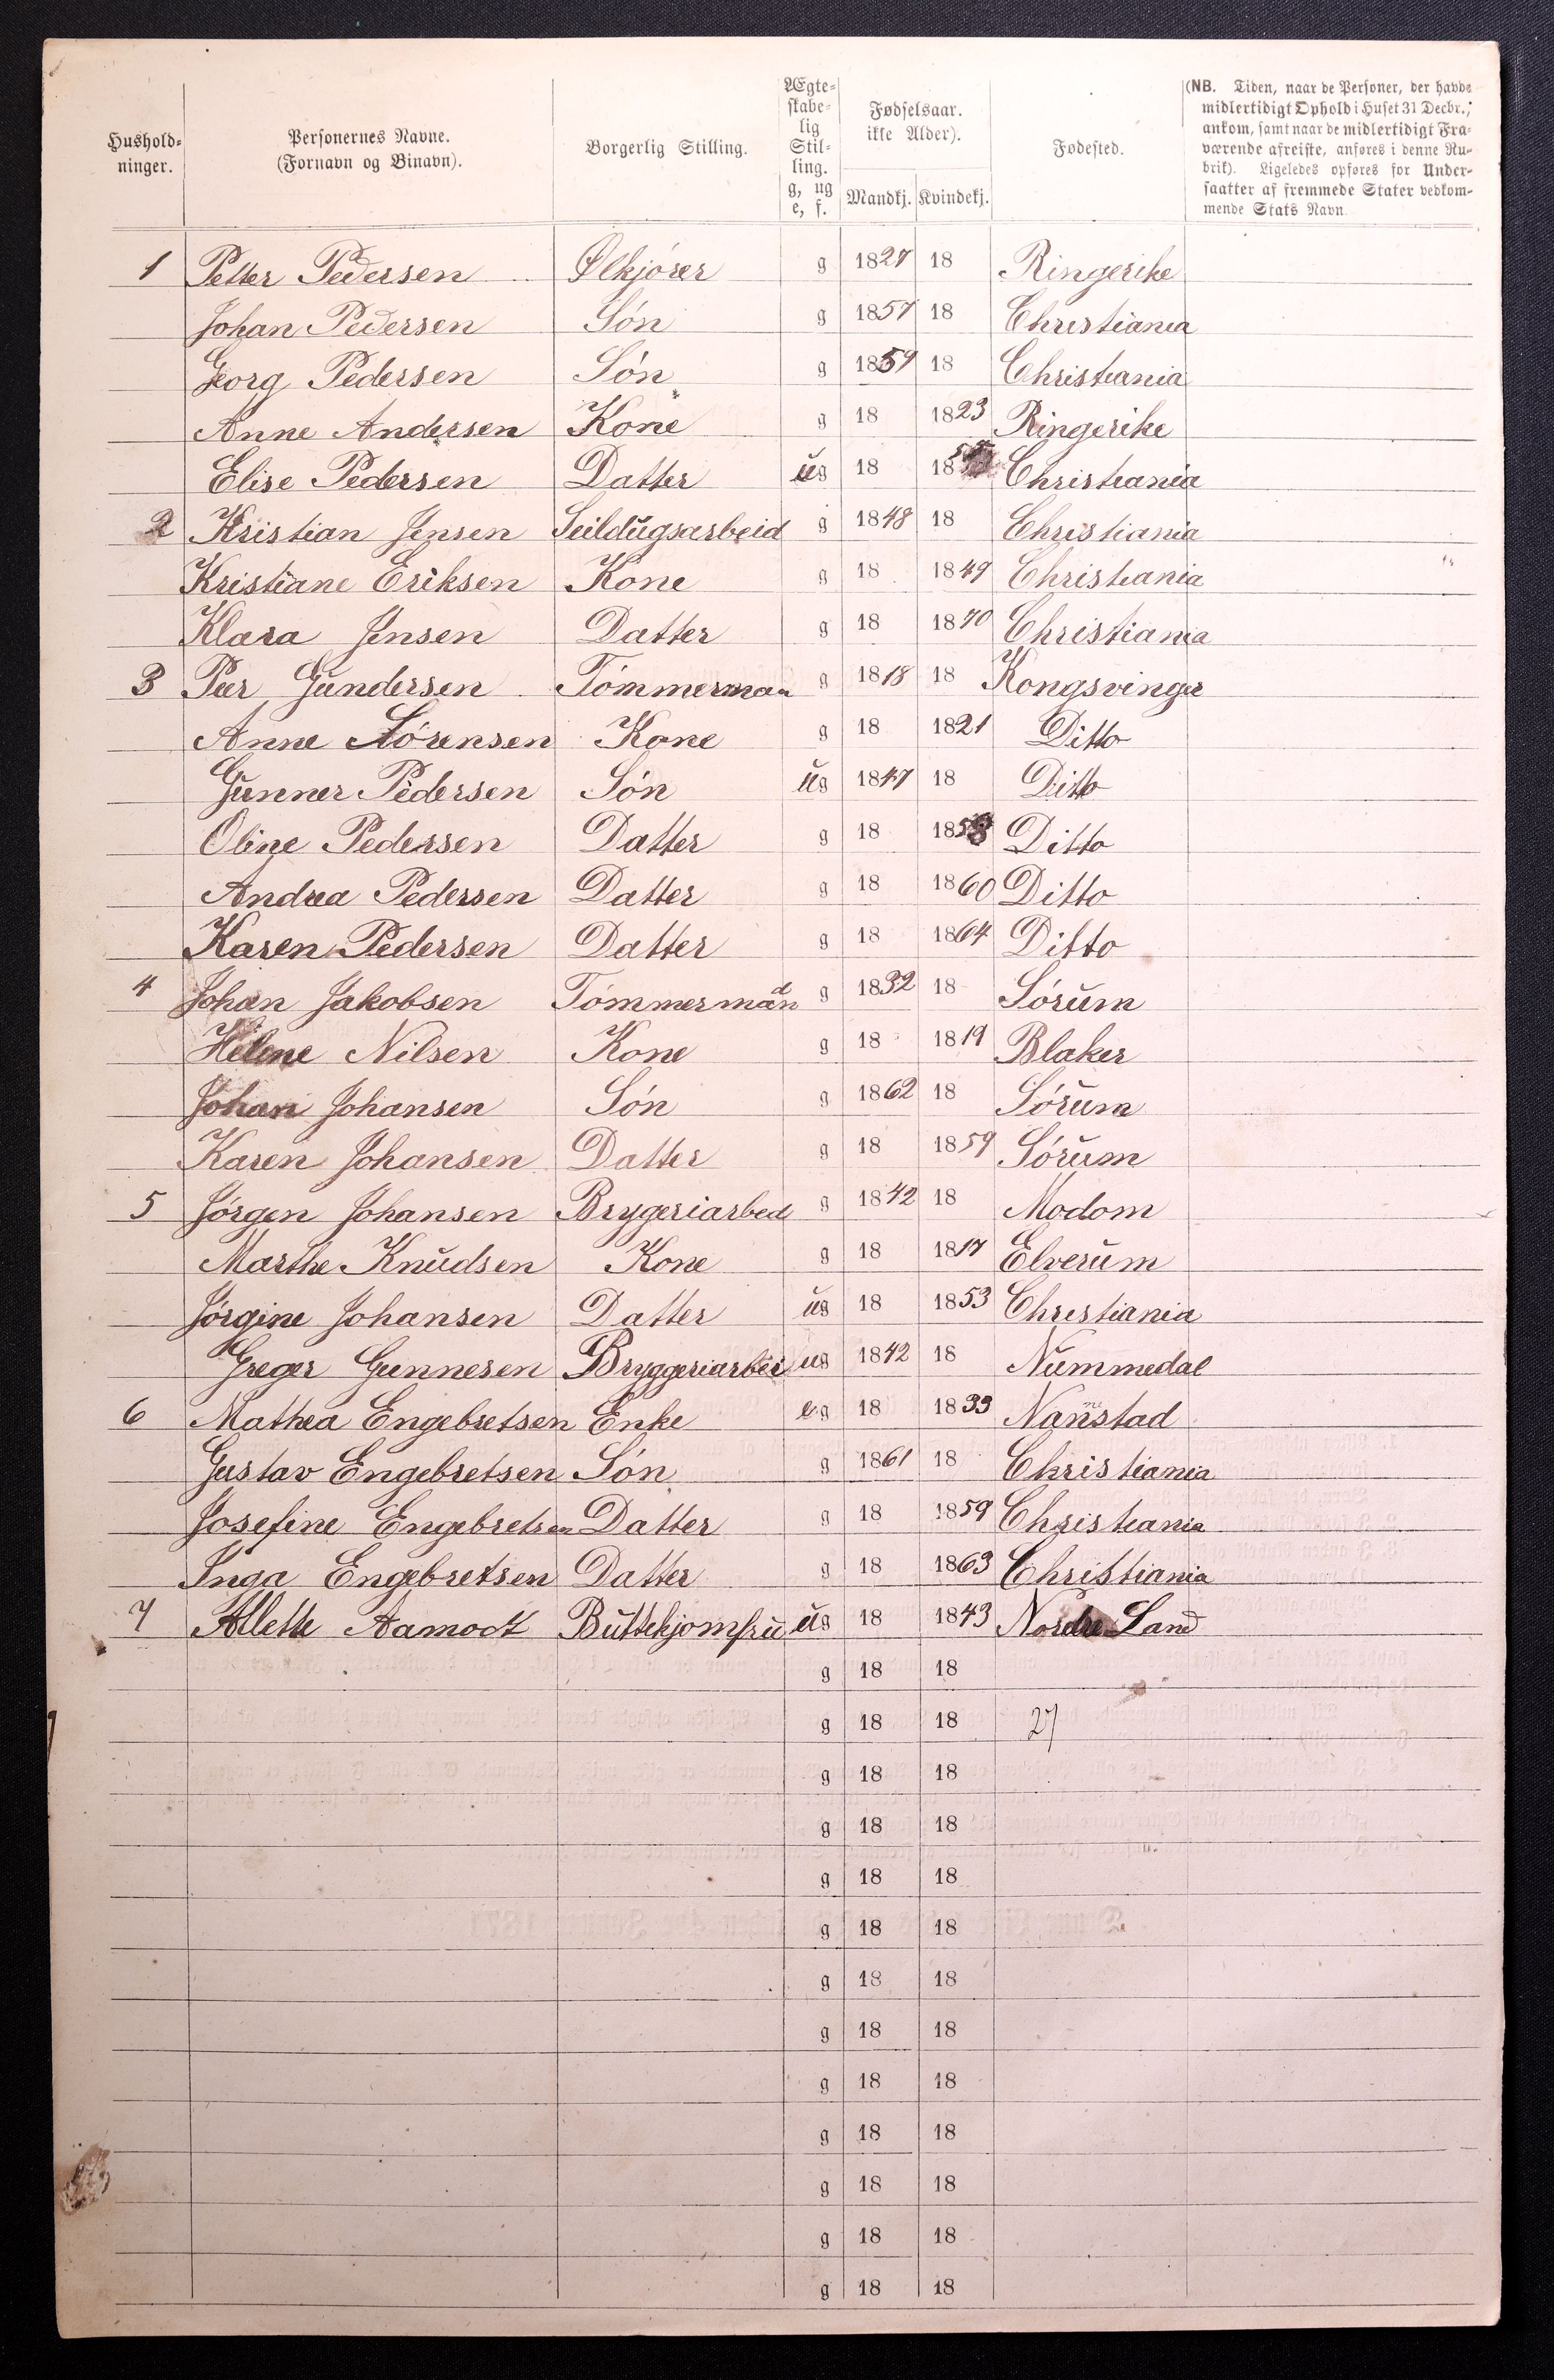 Hushold-
ninger.
Personernes Navne.
(Fornavn og Binavn).
Borgerlig Stilling.
Ægte-
skabe-
lig
Stil-
ling.
g, ug
e, f.
Fødselsaar.
ikke Alder).
Mandkj. Kvindekj.
Fødested.
(NB. Tiden, naar de Personer, der havde
midlertidigt Ophold i Huset 31 Decbr.,
ankom, samt naar de midlertidigt Fra-
værende afreiste, anføres i denne Ru-
brik). Ligeledes opføres for Under-
saatter af fremmede Stater vedkom-
mende Stats Navn.
1 Petter Pedersen Ølkjörer g 1827 18 Ringerike
Johan Pedersen Són g 1857 18 Christiania
Georg Pedersen Són g 1859 18 Christiania
Anne Andersen Kone g 18 1823 Ringerike
Elise Pedersen Datter ug 18 18 Christiania
2 Kristian Jensen Seildugsarbeid g 1848 18 Christiania
Kristiane Eriksen Kone g 18 1849 Christiania
Klara Jensen Datter g 18 1870 Christiania
3 Peer Gundersen Tómmerman g 1818 18 Kongsvinger
Anne Sórensen Kone g 18 1821 Ditto
Gunner Pedersen Són ug 1847 18 Ditto
Oline Pedersen Datter g 18 1858 Ditto
Andrea Pedersen Datter g 18 1860 Ditto
Karen Pedersen Datter g 18 1864 Ditto
4 Johan Jakobsen Tómmermand g 1832 18 Sórum
Helene Nilsen Kone g 18 1819 Blaker
Johan Johansen Són g 1862 18 Sórum
Karen Johansen Datter g 18 1859 Sórum
5 Jórgen Johansen Brygeriarbed g 1842 18 Modom
Marthe Knudsen Kone g 18 1817 Elverum
Jórgine Johansen Datter ug 18 1853 Christiania
Greger Gunnesen Bryggeriarbei ug 1842 18 Nummedal
6 Mathea Engebretsen Enke eg 18 1833 Nannestad
Gustav Engebretsen Són g 1861 18 Christiania
Josefine Engebretsen Datter g 18 1859 Christiania
Inga Engebretsen Datter g 18 1863 Christiania
7 Allette Aamodt Buttekjomfru ug 18 1843 Nordre Land
g 18 18
g 18 18 27
g 18 18
g 18 18
g 18 18
g 18 18
g 18 18
g 18 18
g 18 18
g 18 18
g 18 18
g 18 18
g 18 18